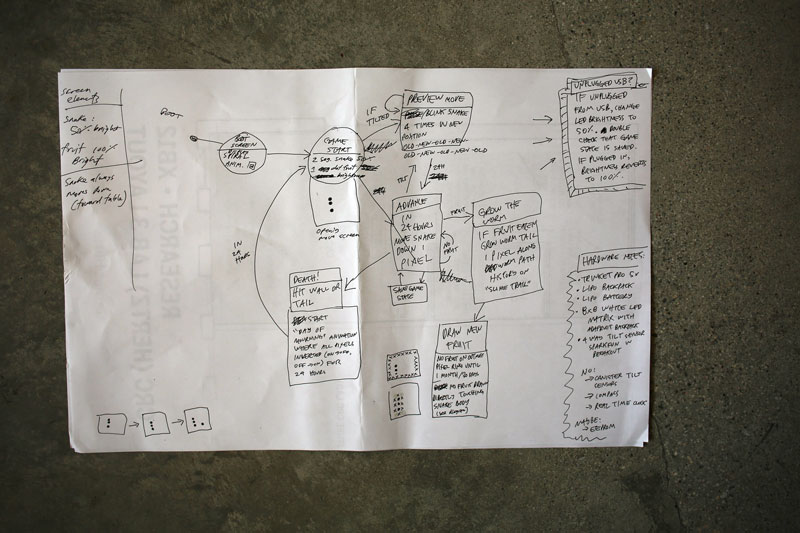 SCREEN
ELEMENTS
SNAKE:
50% BRIGHT
FRUIT 100%
BRIGHT
SNAKE ALWAYS
MOVES DOWN
(TOWARD TABLE)
BOOT
BOOT
SCREEN
SPIRAL
ANIM.
GAME
START
2 SEG. SNAKE
1 DOT FRUIT
OPENING
SCREEN
IN
24
HOURS
IF
TILTED
PREVIEW MOVE
BLINK SNAKE
4 TIMES IN NEW
POSITION
OLD-NEW-OLD-NEW-
OLD-NEW-OLD-NEW-OLD
ADVANCE
IN
24 HOURS
MOVE SNAKE
DOWN 1
PIXEL
FRUIT
NO
FRUIT
SAVE GAME
STATE
GROW THE
WORM
IF FRUIT EATEN
GROW WORM TAIL
1 PIXEL ALONG
WORM PATH
HISTORY OR
"SLIME TRAIL"
DEATH!
HIT WALL OR
TAIL
START
"DAY OF
MOURNING" ANIMATION
WHERE ALL PIXELS
INVERTED
FOR
24 HOURS
DRAW NEW
FRUIT
NO FRUIT ON OUTSIDE
PIXEL RING UNTIL
1 MONTH/30 DAYS
NO FRUIT DRAWN
DIRECTLY TOUCHING
SNAKE BODY
UNPLUGGED USB?
IF UNPLUGGED
FROM USB, CHANGE
LED BRIGHTNESS TO
50%. DOUBLE
CHECK THAT GAME
STATE IS SAVED.
IF PLUGGED IN,
BRIGHTNESS REVERTS
TO 100%.
HARDWARE NOTES:
• TRINKET PRO 5V
• LIPO BACKPACK
• LIPO BATTERY
• 8x8 WHITE LED
MATRIX WITH
ADAFRUIT BACKPACK
• 4 WAY TILT SENSOR
SPARKFUN
BREAKOUT
NO:
→ CANISTER TILT
SENSORS
→ COMPASS
→ REAL TIME CLOCK
MAYBE:
→ EEPROM